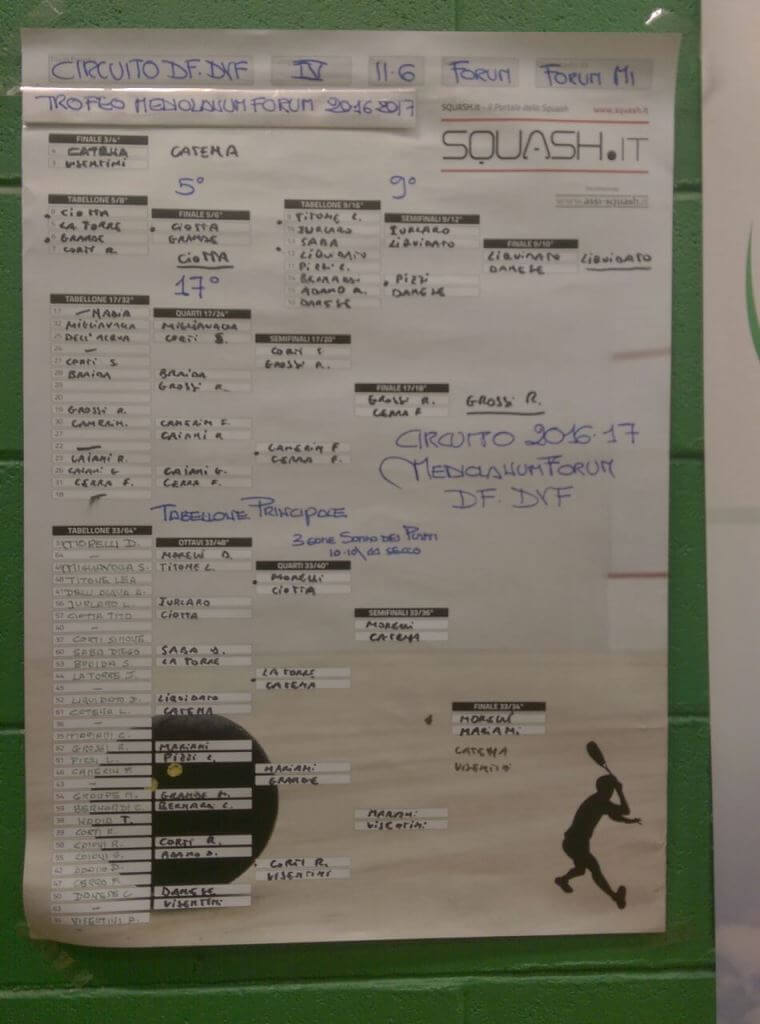 CIRCUITO DF.DVF IV 11.6 FORUM FORUM MI
TROFEO MEDIOLANUM FORUM 2016-2017
SQUASH.it - il Portale dello Squash www.squash.it
SQUASH.IT
FINALE 3/4°
CATENA CATENA
VISENTINI
5° 9°
TABELLONE 5/8°
CIOTTA
LA TORRE
GRANDE
CORTI R.
FINALE 5/6°
CIOTTA
GRANDE
CIOTTA
TABELLONE 9/16°
TITONE L.
JURLARO
SABA
LIQUIDATO
PIZZI L.
BERNARDI
ADAMO D.
DANESE
SEMIFINALI 9/12°
JURLARO
LIQUIDATO
PIZZI
DANESE
FINALE 9/10°
LIQUIDATO
DANESE
LIQUIDATO
17°
TABELLONE 17/32°
NADIA
MIGLIAVACCA
DELL'ACQUA
-
CORTI S.
BRAIDA
GROSSI R.
CAMERIN.
-
CAIANI R.
CAIANI G.
CERRA F.
-
QUARTI 17/24°
MIGLIAVACCA
CORTI S.
BRAIDA
GROSSI R.
CAMERIN F.
CAIANI R
CAIANI G.
CERRA F.
SEMIFINALI 17/20°
CORTI S
GROSSI R.
CAMERIN F
CERRA F.
FINALE 17/18°
GROSSI R.
CERRA F
GROSSI R.
CIRCUITO 2016-17
MEDIOLANUM FORUM
DF. DVF
TABELLONE PRINCIPALE
3 SONO DEI PUNTI
SECCO
TABELLONE 33/64°
MORELLI D.
-
MIGLIAVACCA S.
TITONE LEA
DELL'ACQUA A.
JURLARO L.
CIOTTA TITO
-
CORTI SIMONE
SABA DIEGO
BRAIDA S.
LA TORRE J.
-
LIQUIDATO D.
CATENA L.
-
MARIANI C.
GROSSI R.
PIZZI L.
CAMERIN F.
-
BERNARDI C.
NADIA T.
CORTI R.
CAIANI R.
CAIANI G.
ADAMO D.
CERRA F.
DANESE C.
-
VISENTINI P.
OTTAVI 33/48°
MORELLI D.
TITONE L.
JURLARO
CIOTTA
SABA D.
LA TORRE
LIQUIDATO
CATENA
MARIANI
PIZZI L.
GRANDE M.
BERNARDI C.
CORTI R.
ADAMO D.
DANESE
VISENTINI
QUARTI 33/40°
MORELLI
CIOTTA
LA TORRE
CATENA
MARIANI
GRANDE
CORTI R.
VISENTINI
SEMIFINALI 33/36°
MORELLI
CATENA
MARIANI
VISENTINI
FINALE 33/34°
MORELLI
MARIANI
CATENA
VISENTINI